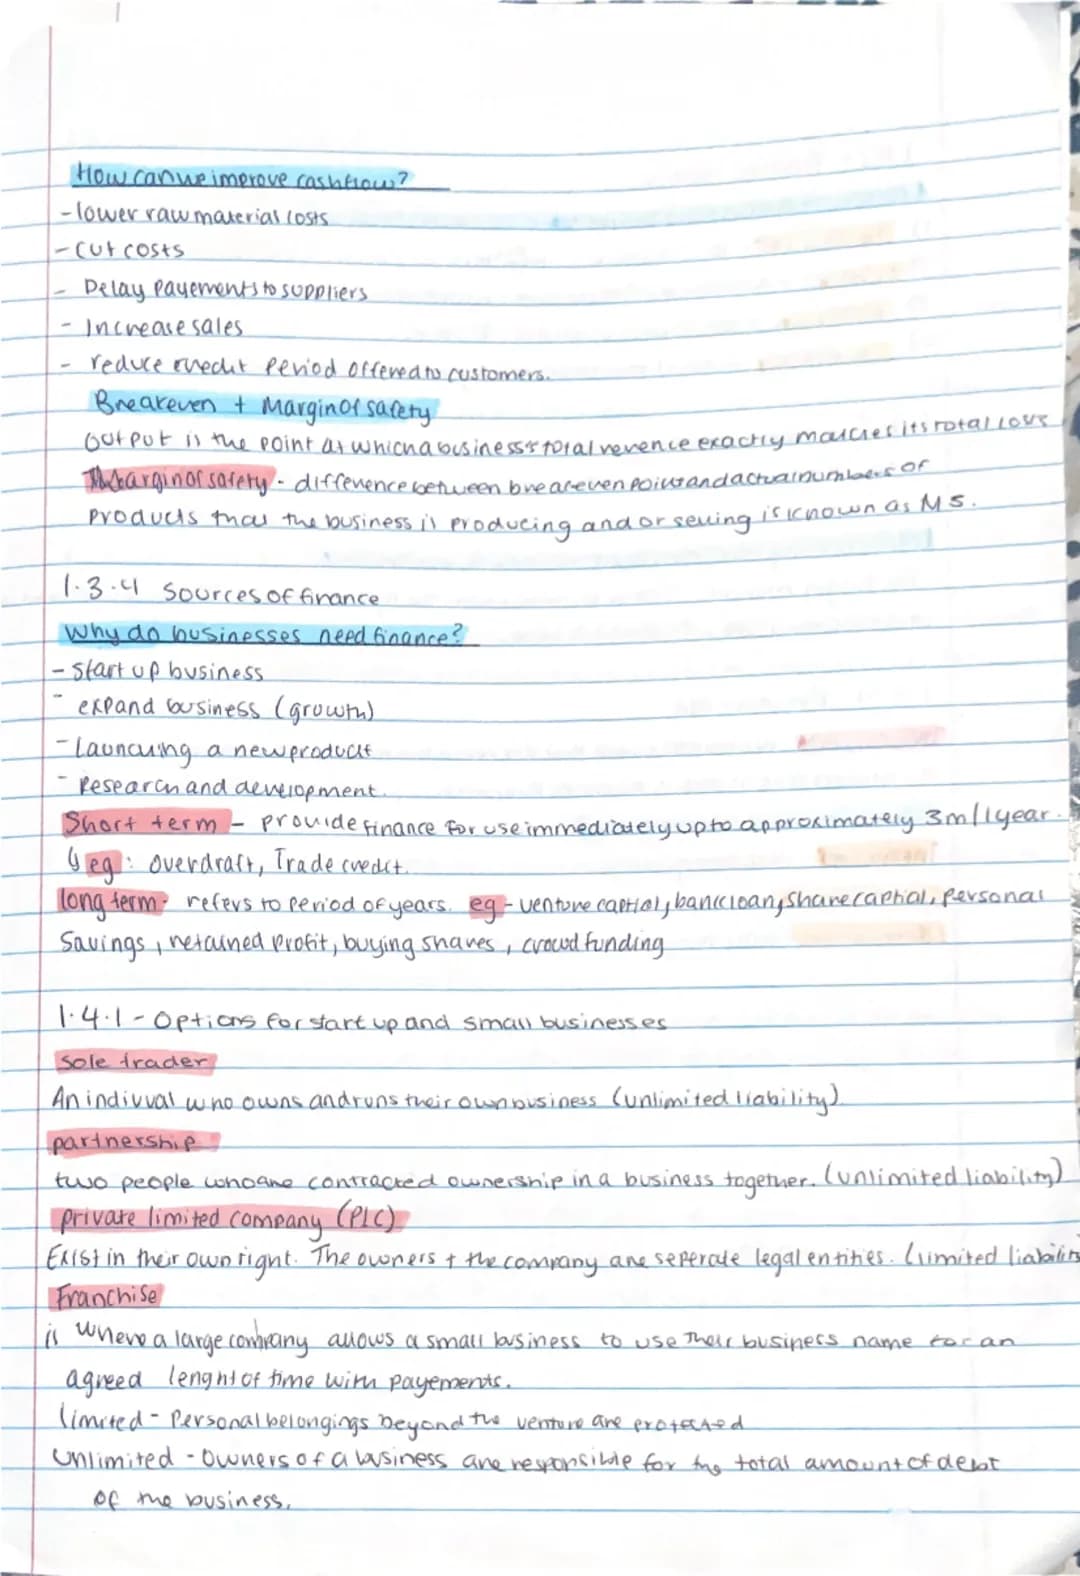 How can we improve cashflow?
- lower raw material costs
- cut costs
- Delay Payements to suppliers
- Increase sales
- reduce credit Period offered to customers.
Breakeven + Margin of safety
output is the point at which a business's total revence exactly matches its total cost
Margin of safety - difference between breakeven point and actual numbers of
products that the business is producing and or selling is known as MS.
1.3.4 Sources of finance
Why do businesses need finance?
- Start up business
- expand business (growth)
- Launching a new product
- Research and development.
Short term - provide finance for use immediately up to approximately 3m/1year.
eg: overdraft, Trade credit.
long term: refers to period of years. eg - venture captial, bank loan, share captial, personal
Savings, retained profit, buying shares, crowd funding
1.4.1 - Options for start up and small businesses
Sole trader
An indivual who owns and runs their own business (unlimited liability)
partnership
two people who are contracted ownership in a business together. (unlimited liability)
private limited company (PLC)
Exist in their own right. The owners + the company are seperate legal entities. (limited liability
Franchise
is where a large company allows a small business to use their business name for an
agreed lenght of time with payements.
limited - Personal belongings beyond the venture are protected
Unlimited - Owners of a business are responsible for the total amount of debt
of the business.